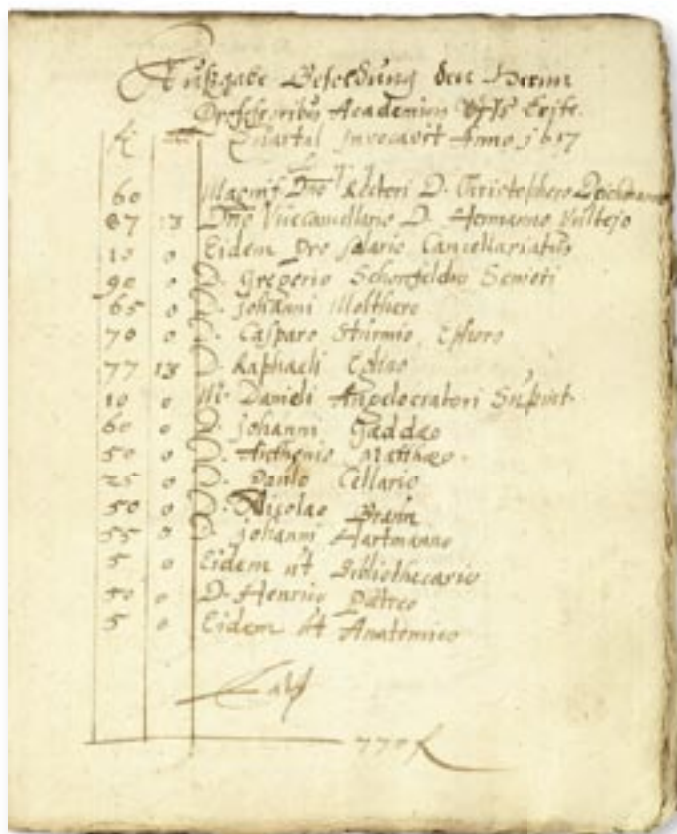 Außgabe Besoldung den Herrn
Professoribus Academicis
Quartal Invocavit Anno 1617
60 Magnif. Dno Rectori D. Christophero
87 13 Dno Vicecancellario D. Hermanno Vultejo
10 0 Eidem pro salario Cancellariatus
90 0 D. Gregorio Schonfeldio
65 0 D. Johanni Molthero
70 0 D. Casparo Sturmio, Ephoro
77 13 D. Raphaeli Eglino
10 0 M. Danieli Angelocratori
60 0 D. Johanni Gœddæo
50 0 D. Anthonio Matthæo
25 0 D. Paulo Cellario
50 0 D. Nicolao Braun
55 0 D. Johanni Hartmanno
5 0 Eidem ut Bibliothecario
50 0 D. Henrico Petreo
5 0 Eidem ut Anatomico
770